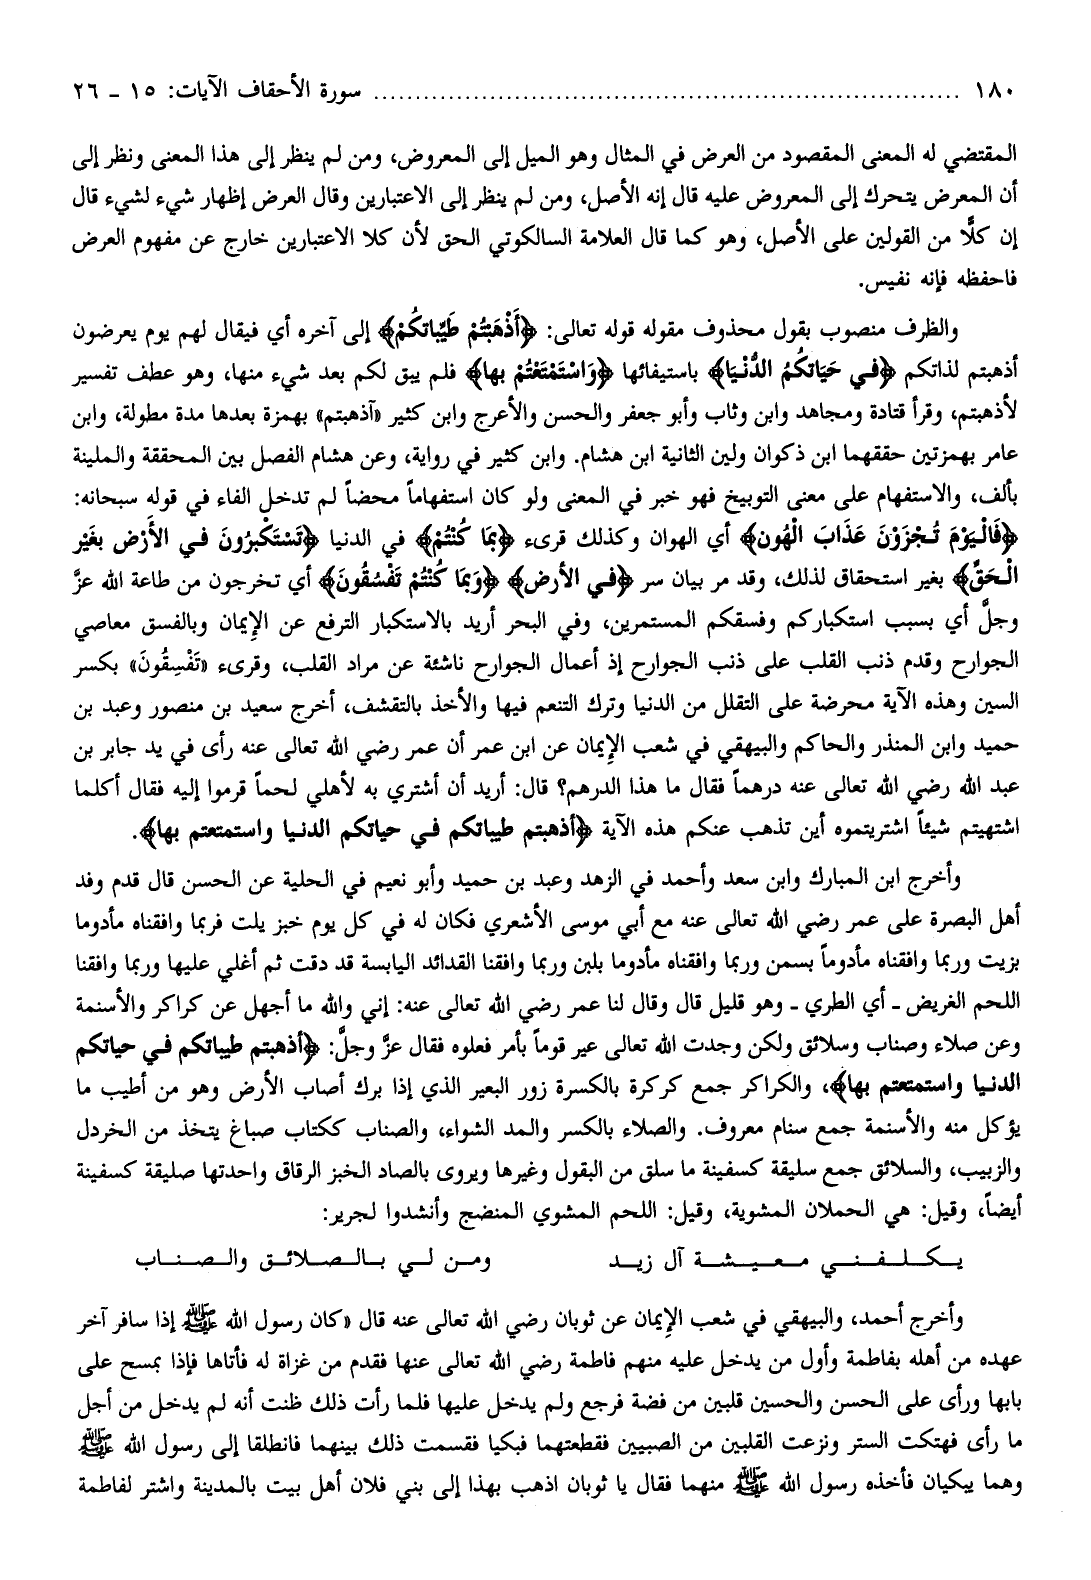 ١٨٠ ........................................................................ سورة الأحقاف الآيات: ١٥ ـ ٢٦
المقتضي له المعنى المقصود من العرض في المثال وهو الميل إلى المعروض، ومن لم ينظر إلى هذا المعنى ونظر إلى
أن المعرض يتحرك إلى المعروض عليه قال إنه الأصل، ومن لم ينظر إلى الاعتبارين وقال العرض إظهار شيء لشيء قال
إن كلًّا من القولين على الأصل، وهو كما قال العلامة السالكوتي الحق لأن كلا الاعتبارين خارج عن مفهوم العرض
فاحفظه فإنه نفيس.
والظرف منصوب بقول محذوف مقوله قوله تعالى: ﴿أَذْهَبْتُمْ طَيِّباتكُمْ﴾ إلى آخره أي فيقال لهم يوم يعرضون
أذهبتم لذاتكم ﴿في حَيَاتكُمُ الدُّنْيَا﴾ باستيفائها ﴿وَاسْتَمْتَعْتُمْ بها﴾ فلم يبق لكم بعد شيء منها، وهو عطف تفسير
لأذهبتم، وقرأ قتادة ومجاهد وابن وثاب وأبو جعفر والحسن والأعرج وابن كثير «آذهبتم» بهمزة بعدها مدة مطولة، وابن
عامر بهمزتين حققهما ابن ذكوان ولين الثانية ابن هشام. وابن كثير في رواية، وعن هشام الفصل بين المحققة والملينة
بألف، والاستفهام على معنى التوبيخ فهو خبر في المعنى ولو كان استفهاماً محضاً لم تدخل الفاء في قوله سبحانه:
﴿فَالْيَوْمَ تُجْزَوْنَ عَذَابَ الْهُون﴾ أي الهوان وكذلك قرىء ﴿بمَا كُنْتُمْ﴾ في الدنيا ﴿تَسْتَكْبرُونَ في الأَرْض بغَيْر
الْحَقِّ﴾ بغير استحقاق لذلك، وقد مر بيان سر ﴿في الأرض﴾ ﴿وَبمَا كُنْتُمْ تَفْسُقُونَ﴾ أي تخرجون من طاعة الله عزَّ
وجلَّ أي بسبب استكباركم وفسقكم المستمرين، وفي البحر أريد بالاستكبار الترفع عن الإيمان وبالفسق معاصي
الجوارح وقدم ذنب القلب على ذنب الجوارح إذ أعمال الجوارح ناشئة عن مراد القلب، وقرىء «تَفْسِقُونَ» بكسر
السين وهذه الآية محرضة على التقلل من الدنيا وترك التنعم فيها والأخذ بالتقشف، أخرج سعيد بن منصور وعبد بن
حميد وابن المنذر والحاكم والبيهقي في شعب الإيمان عن ابن عمر أن عمر رضي الله تعالى عنه رأى في يد جابر بن
عبد الله رضي الله تعالى عنه درهماً فقال ما هذا الدرهم؟ قال: أريد أن أشتري به لأهلي لحماً قرموا إليه فقال أكلما
اشتهيتم شيئاً اشتريتموه أين تذهب عنكم هذه الآية ﴿أذهبتم طيباتكم في حياتكم الدنيا واستمتعتم بها﴾.
وأخرج ابن المبارك وابن سعد وأحمد في الزهد وعبد بن حميد وأبو نعيم في الحلية عن الحسن قال قدم وفد
أهل البصرة على عمر رضي الله تعالى عنه مع أبي موسى الأشعري فكان له في كل يوم خبز يلت فربما وافقناه مأدوما
بزيت وربما وافقناه مأدوماً بسمن وربما وافقناه مأدوما بلبن وربما وافقنا القدائد اليابسة قد دقت ثم أغلي عليها وربما وافقنا
اللحم الغريض ـ أي الطري ـ وهو قليل قال وقال لنا عمر رضي الله تعالى عنه: إني والله ما أجهل عن كراكر والأسنمة
وعن صلاء وصناب وسلائق ولكن وجدت الله تعالى عير قوماً بأمر فعلوه فقال عزَّ وجلَّ: ﴿أذهبتم طيباتكم في حياتكم
الدنيا واستمتعتم بها﴾، والكراكر جمع كركرة بالكسرة زور البعير الذي إذا برك أصاب الأرض وهو من أطيب ما
يؤكل منه والأسنمة جمع سنام معروف. والصلاء بالكسر والمد الشواء، والصناب ككتاب صباغ يتخذ من الخردل
والزبيب، والسلائق جمع سليقة كسفينة ما سلق من البقول وغيرها ويروى بالصاد الخبز الرقاق واحدتها صليقة كسفينة
أيضاً، وقيل: هي الحملان المشوية، وقيل: اللحم المشوي المنضج وأنشدوا لجرير:
يكلفني معيشة آل زيد ومن لي بالصلائق والصناب
وأخرج أحمد، والبيهقي في شعب الإيمان عن ثوبان رضي الله تعالى عنه قال «كان رسول الله ﷺ إذا سافر آخر
عهده من أهله بفاطمة وأول من يدخل عليه منهم فاطمة رضي الله تعالى عنها فقدم من غزاة له فأتاها فإذا بمسح على
بابها ورأى على الحسن والحسين قلبين من فضة فرجع ولم يدخل عليها فلما رأت ذلك ظنت أنه لم يدخل من أجل
ما رأى فهتكت الستر ونزعت القلبين من الصبيين فقطعتهما فبكيا فقسمت ذلك بينهما فانطلقا إلى رسول الله ﷺ
وهما يبكيان فأخذه رسول الله ﷺ منهما فقال يا ثوبان اذهب بهذا إلى بني فلان أهل بيت بالمدينة واشتر لفاطمة